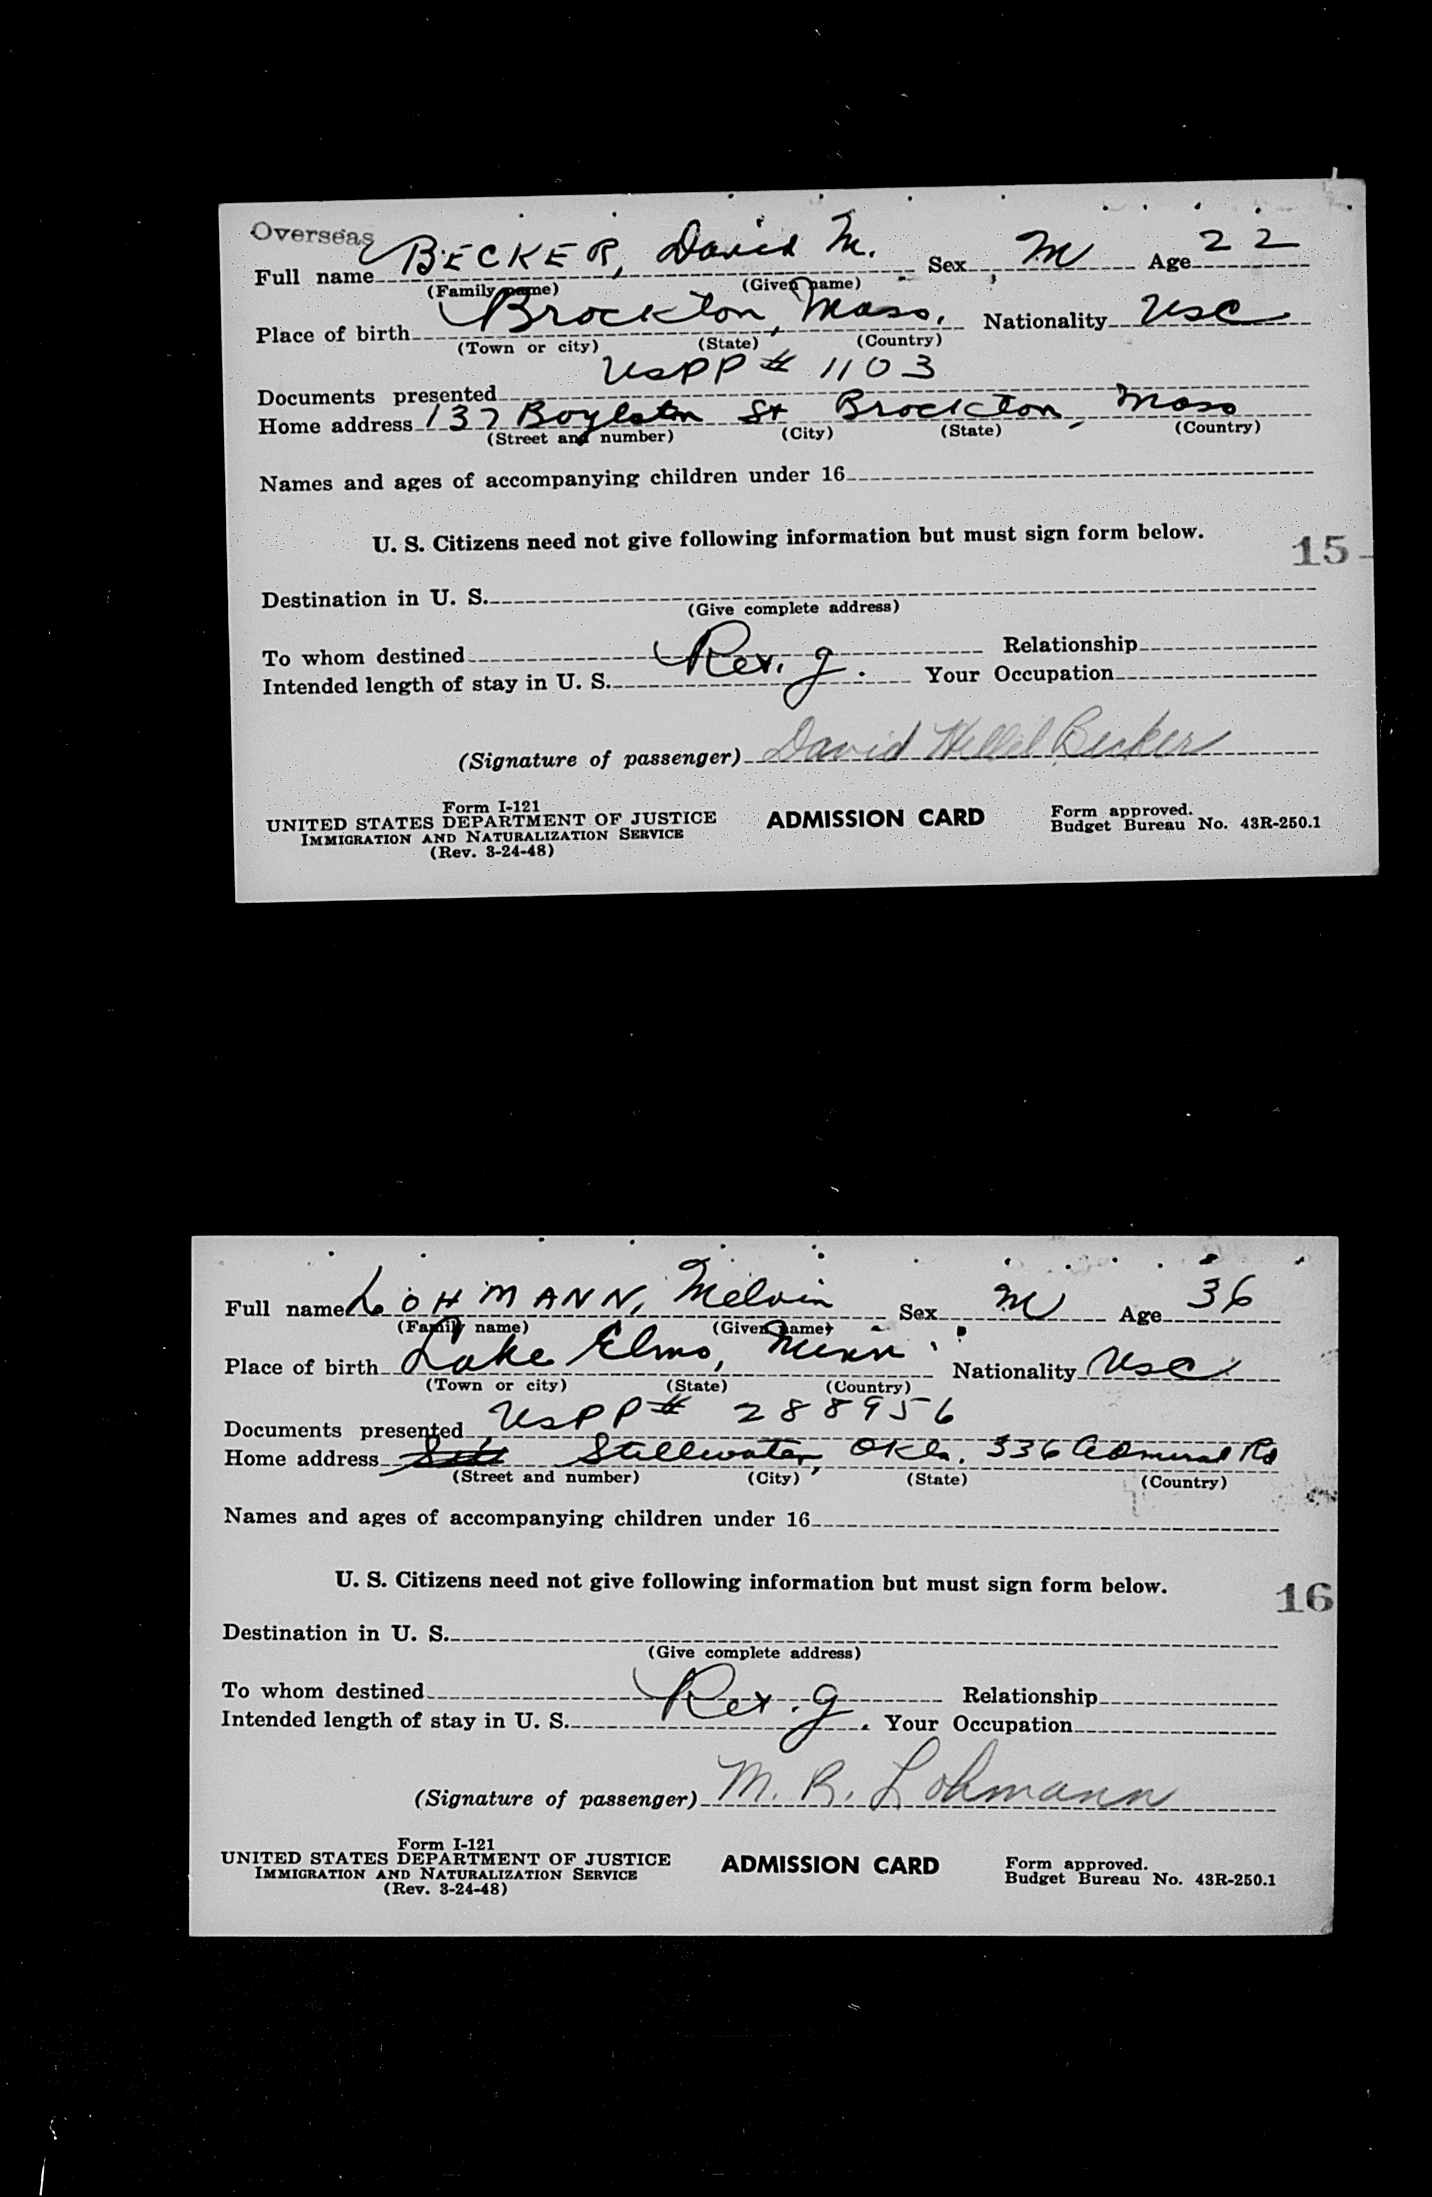 Overseas
Full name BECKER, David M. Sex M Age 22
(Family name) (Given name)
Place of birth Brockton, Mass. Nationality USC
(Town or city) (State) (Country)
Documents presented USPP # 1103
Home address 137 Boylston St Brockton, Mass
(Street and number) (City) (State) (Country)
Names and ages of accompanying children under 16
U. S. Citizens need not give following information but must sign form below.
15-
Destination in U. S.
(Give complete address)
To whom destined Relationship
Intended length of stay in U. S. Your Occupation
(Signature of passenger) David Becker
Form I-121
UNITED STATES DEPARTMENT OF JUSTICE ADMISSION CARD Form approved.
IMMIGRATION AND NATURALIZATION SERVICE Budget Bureau No. 43R-250.1
(Rev. 3-24-48)
Full name LOHMANN, Melvin Sex M Age 36
(Family name) (Given name)
Place of birth Lake Elmo, Minn. Nationality USC
(Town or city) (State) (Country)
Documents presented USPP # 288956
Home address Stillwater, Okla. 336 Admiral Rd
(Street and number) (City) (State) (Country)
Names and ages of accompanying children under 16
U. S. Citizens need not give following information but must sign form below.
16
Destination in U. S.
(Give complete address)
To whom destined Relationship
Intended length of stay in U. S. Your Occupation
(Signature of passenger) M. R. Lohmann
Form I-121
UNITED STATES DEPARTMENT OF JUSTICE ADMISSION CARD Form approved.
IMMIGRATION AND NATURALIZATION SERVICE Budget Bureau No. 43R-250.1
(Rev. 3-24-48)